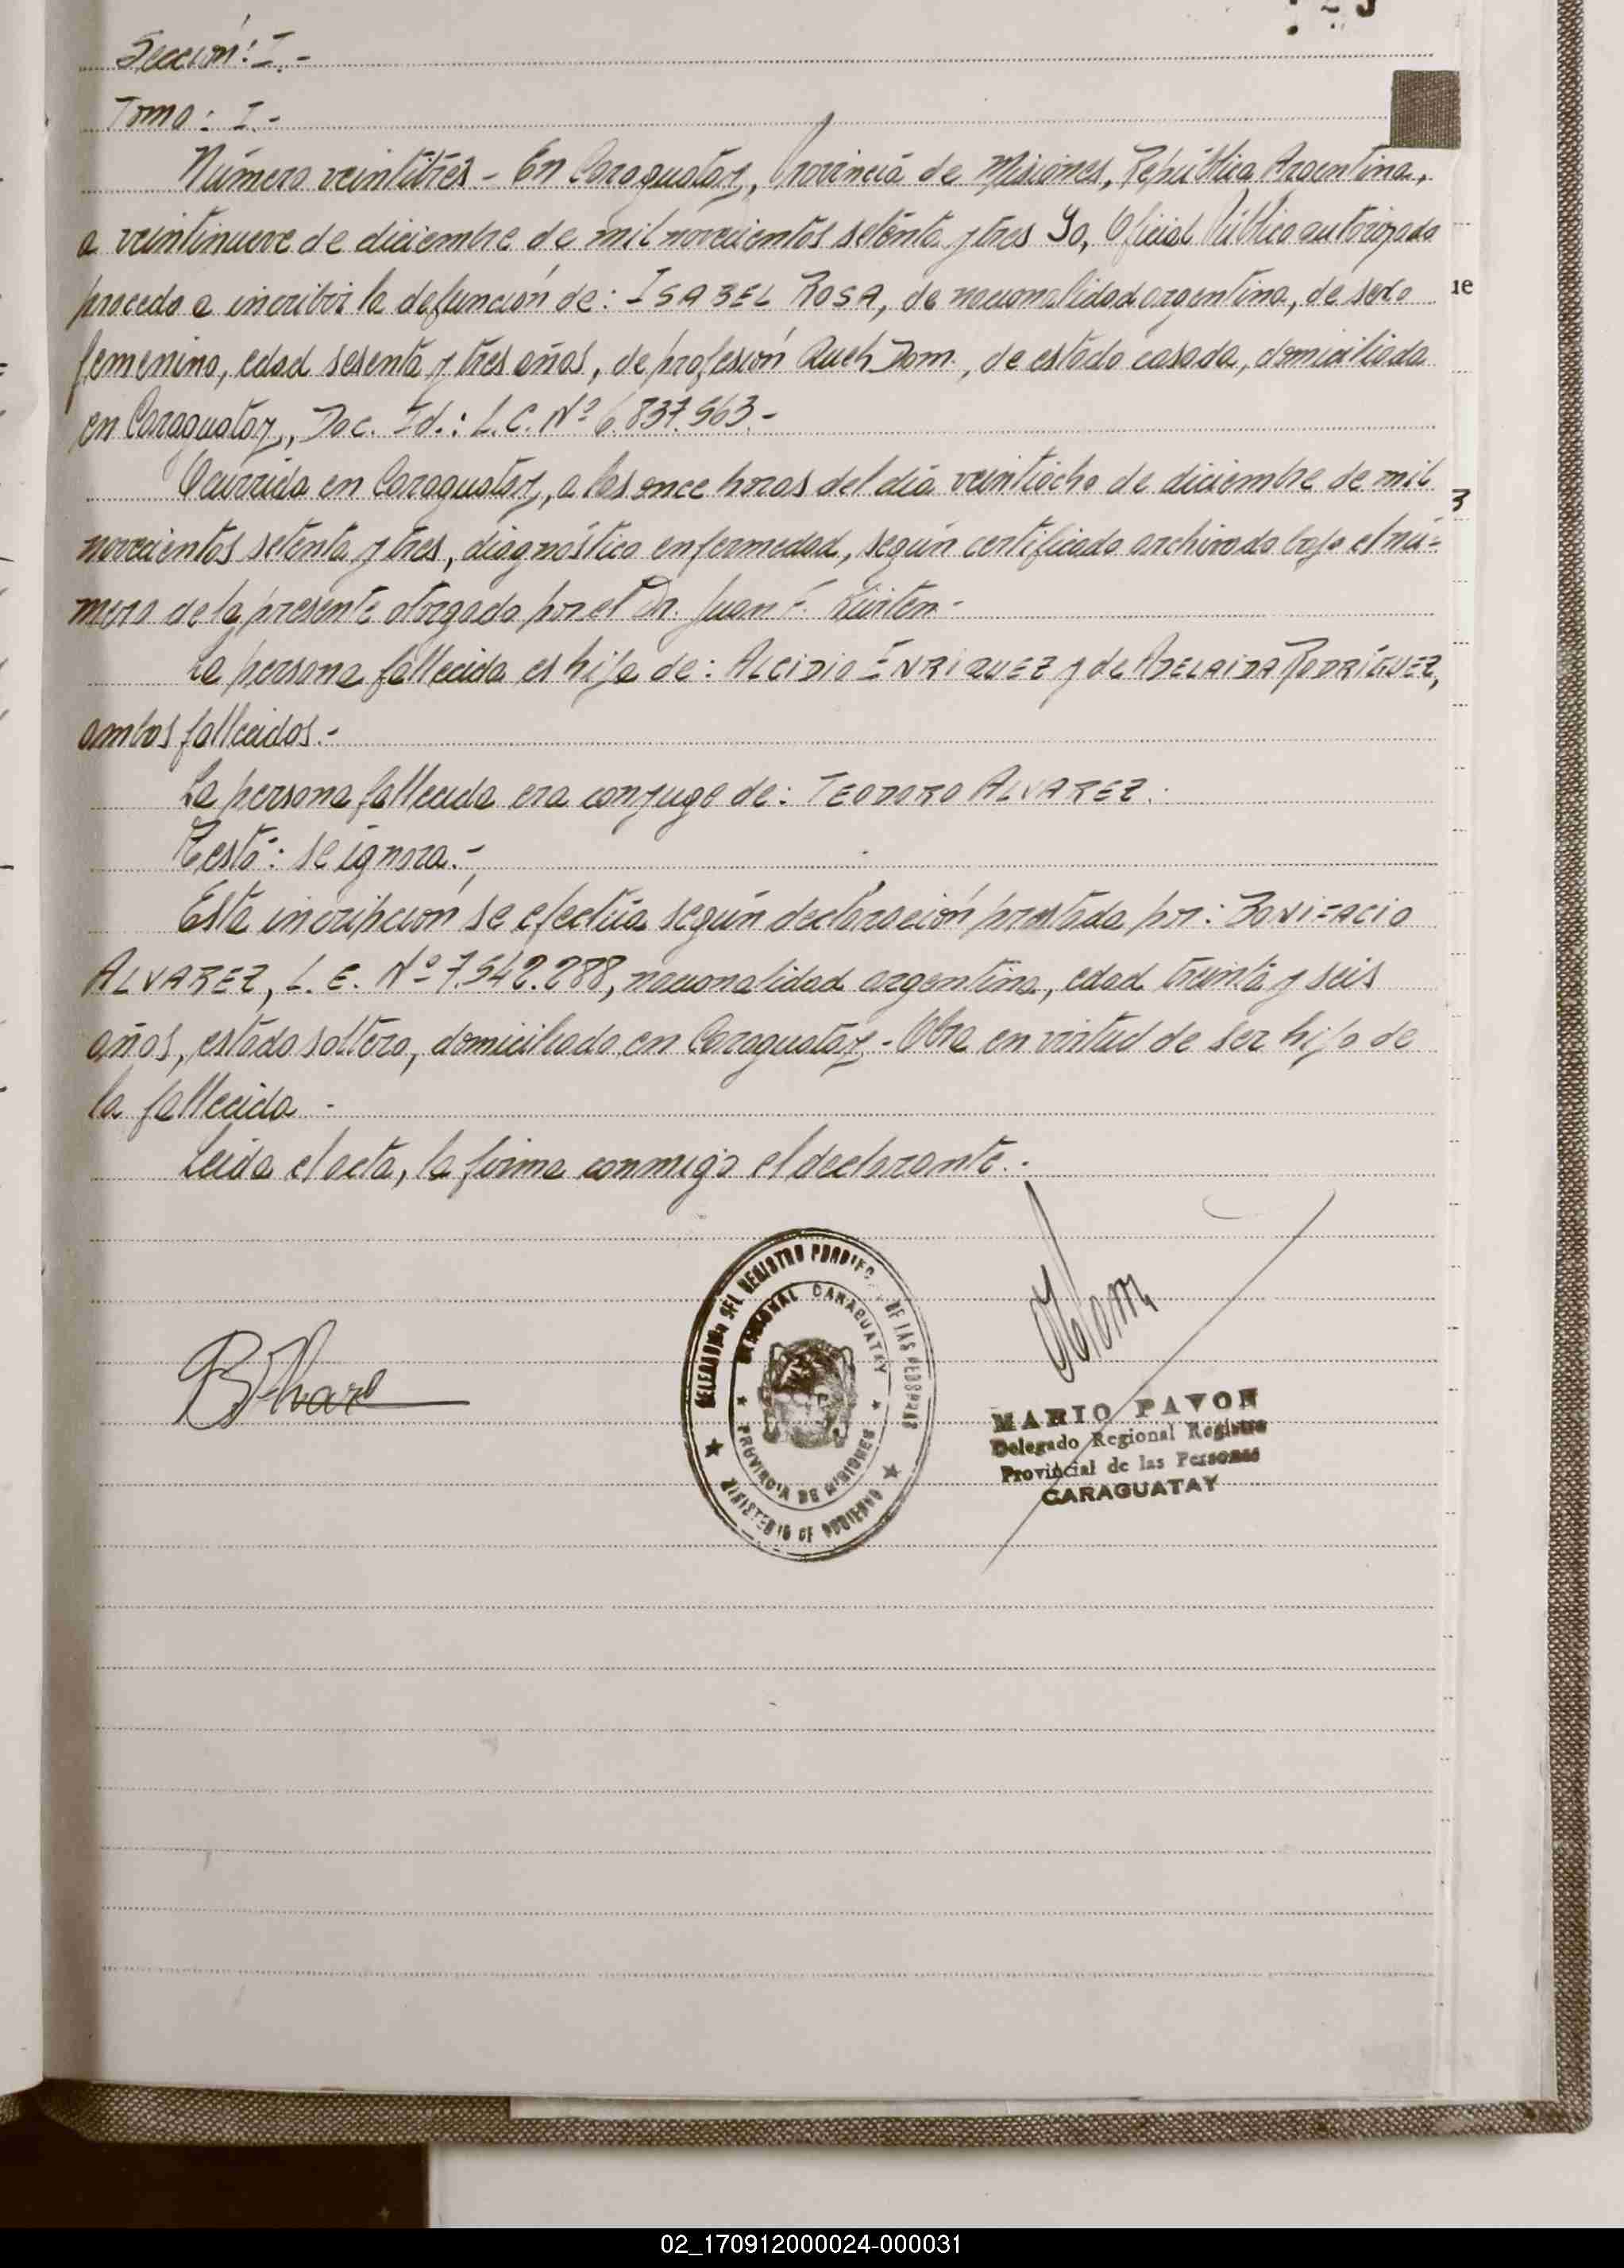 Sección: I.-
Tomo: I.-
Número veintitrés - En Caraguatay, Provincia de Misiones, República Argentina,
a veintinueve de diciembre de mil novecientos setenta y tres Yo, Oficial Público autorizado
procedo a incribir la defunción de: ISABEL ROSA, de nacionalidad argentina, de sexo
femenino, edad sesenta y tres años, de profesión Queh Dom., de estado casada, domiciliada
en Caraguatay, Doc. Id.: L.C. Nº 6.837.563.-
Ocurrida en Caraguatay, a las once horas del día veintiocho de diciembre de mil
novecientos setenta y tres, diagnóstico enfermedad, según certificado archivado bajo el nú-
mero de la presente otorgado por el Dr. Juan F.
La persona fallecida es hija de: ALCIDIO ENRIQUEZ y de ADELAIDA RODRÍGUEZ,
ambos fallecidos.-
La persona fallecida era conjuge de: TEODORO ALVAREZ.
Testó: se ignora.-
Esta incripción se efectúa según declaración prestada por: BONIFACIO
ALVAREZ, L.E. Nº 7.542.288, nacionalidad argentina, edad treinta y seis
años, estado soltero, domiciliado en Caraguatay - Obra en virtud de ser hijo de
la fallecida -
Leída el acta, la firma conmigo el declarante.-
DELEGACION DEL REGISTRO DE LAS PERSONAS
REGIONAL CARAGUATAY
PROVINCIA DE MISIONES
MINISTERIO DE GOBIERNO
MARIO PAVON
Delegado Regional Registro
Provincial de las Personas
CARAGUATAY
ue
3
02_170912000024-000031